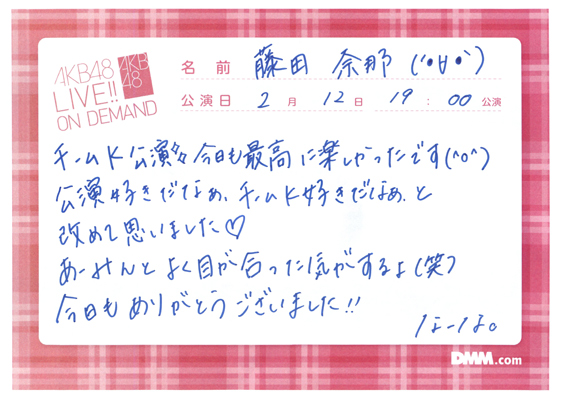 AKB48
LIVE!!
ON DEMAND
AKB
48
名前 藤田 奈那 (・∀・)
公演日 2月 12日 19:00 公演
チームK公演♪今日も最高に楽しかったです(^o^)
公演好きだなぁ、チームK好きだなぁ、と
改めて思いました♡
あーみんとよく目が合った気がするよ(笑)
今日もありがとうございました!!
なーな。
DMM.com